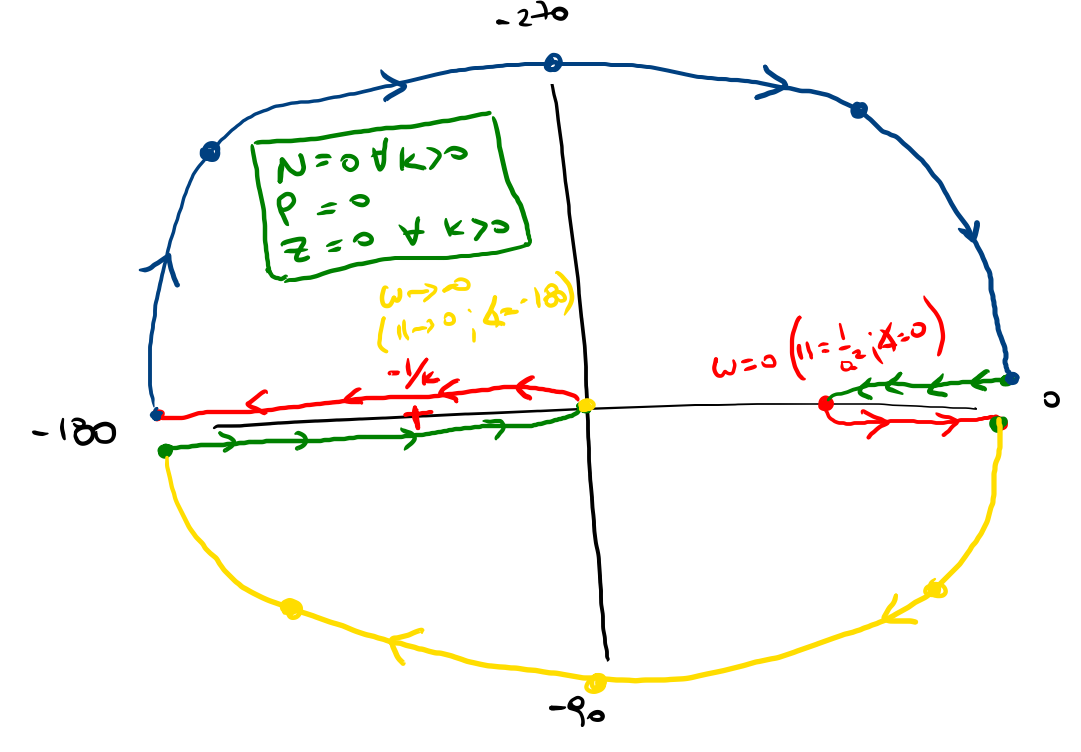 -270
N=0 ∀ K>0
P=0
Z=0 ∀ K>0
ω→∞
(||→0; ∡=-180)
-1/K
ω=0 (||=1/a²; ∡=0)
-180
0
-90